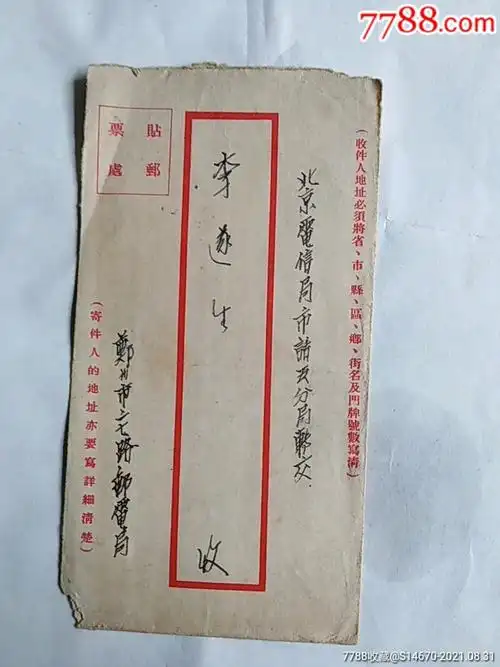 7788.com
中国收藏热线
(收件人地址必須將省、市、縣、區、鄉、街名及門牌號數寫清)
北京電信局市話五分局轉交
李遂生
收
貼郵
票處
鄭州市二七路郵電局
(寄件人的地址亦要寫詳細清楚)
7788收藏@S14670-2021.08.31